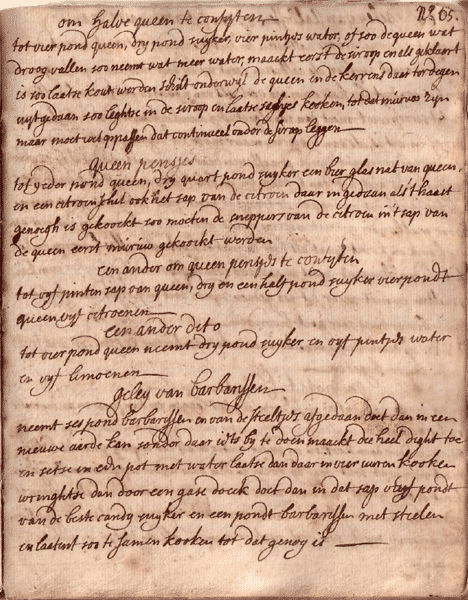 N° 65.
om halve queen te confyten
tot vier pond queen, dry pond suyker, vier pintjes water, of soo de queen wat
droog vallen soo neemt wat meer water, maackt eerst de siroop en als geklaert
is soo laetse kout werden schilt onderwijl de queen in de kerrens daer tordegen
uytgedaan soo leghtse in de siroop en laetse saghjes kooken, tot dat murwe zijn
maar moet wel oppassen dat continueel onder de sirop leggen
queen persjes
tot yeder pond queen, dry quart pond suyker een bier glas nat van queen,
en een citroen schil ook het sap van de citroen daar in gedaan als 't haast
genoegh is gekoockt soo moeten de snippers van de citroen in 't sap van
de queen eerst murwe gekoockt werden
een ander om queen persjes te confyten
tot vyf pinten sap van queen, dry en een half pond suyker vier pondt
queen vyf citroenen
een ander dito
tot vier pond queen neemt dry pond suyker en vyf pintjes water
en vyf limoenen
geley van barbarissen
neemt ses pond barbarissen en van de steeltjes afgedaan doet dan in een
nieuwe aarde kan sonder daar iets by te doen maackt die heel dight toe
en setse in een pot met water laatse dan daar in vier uuren kooken
wringhtse dan door een gase doeck doet dan in dat sap vyf pondt
van de beste candy suyker en een pondt barbarissen met steelen
en laetent soo te samen kooken tot dat genog is